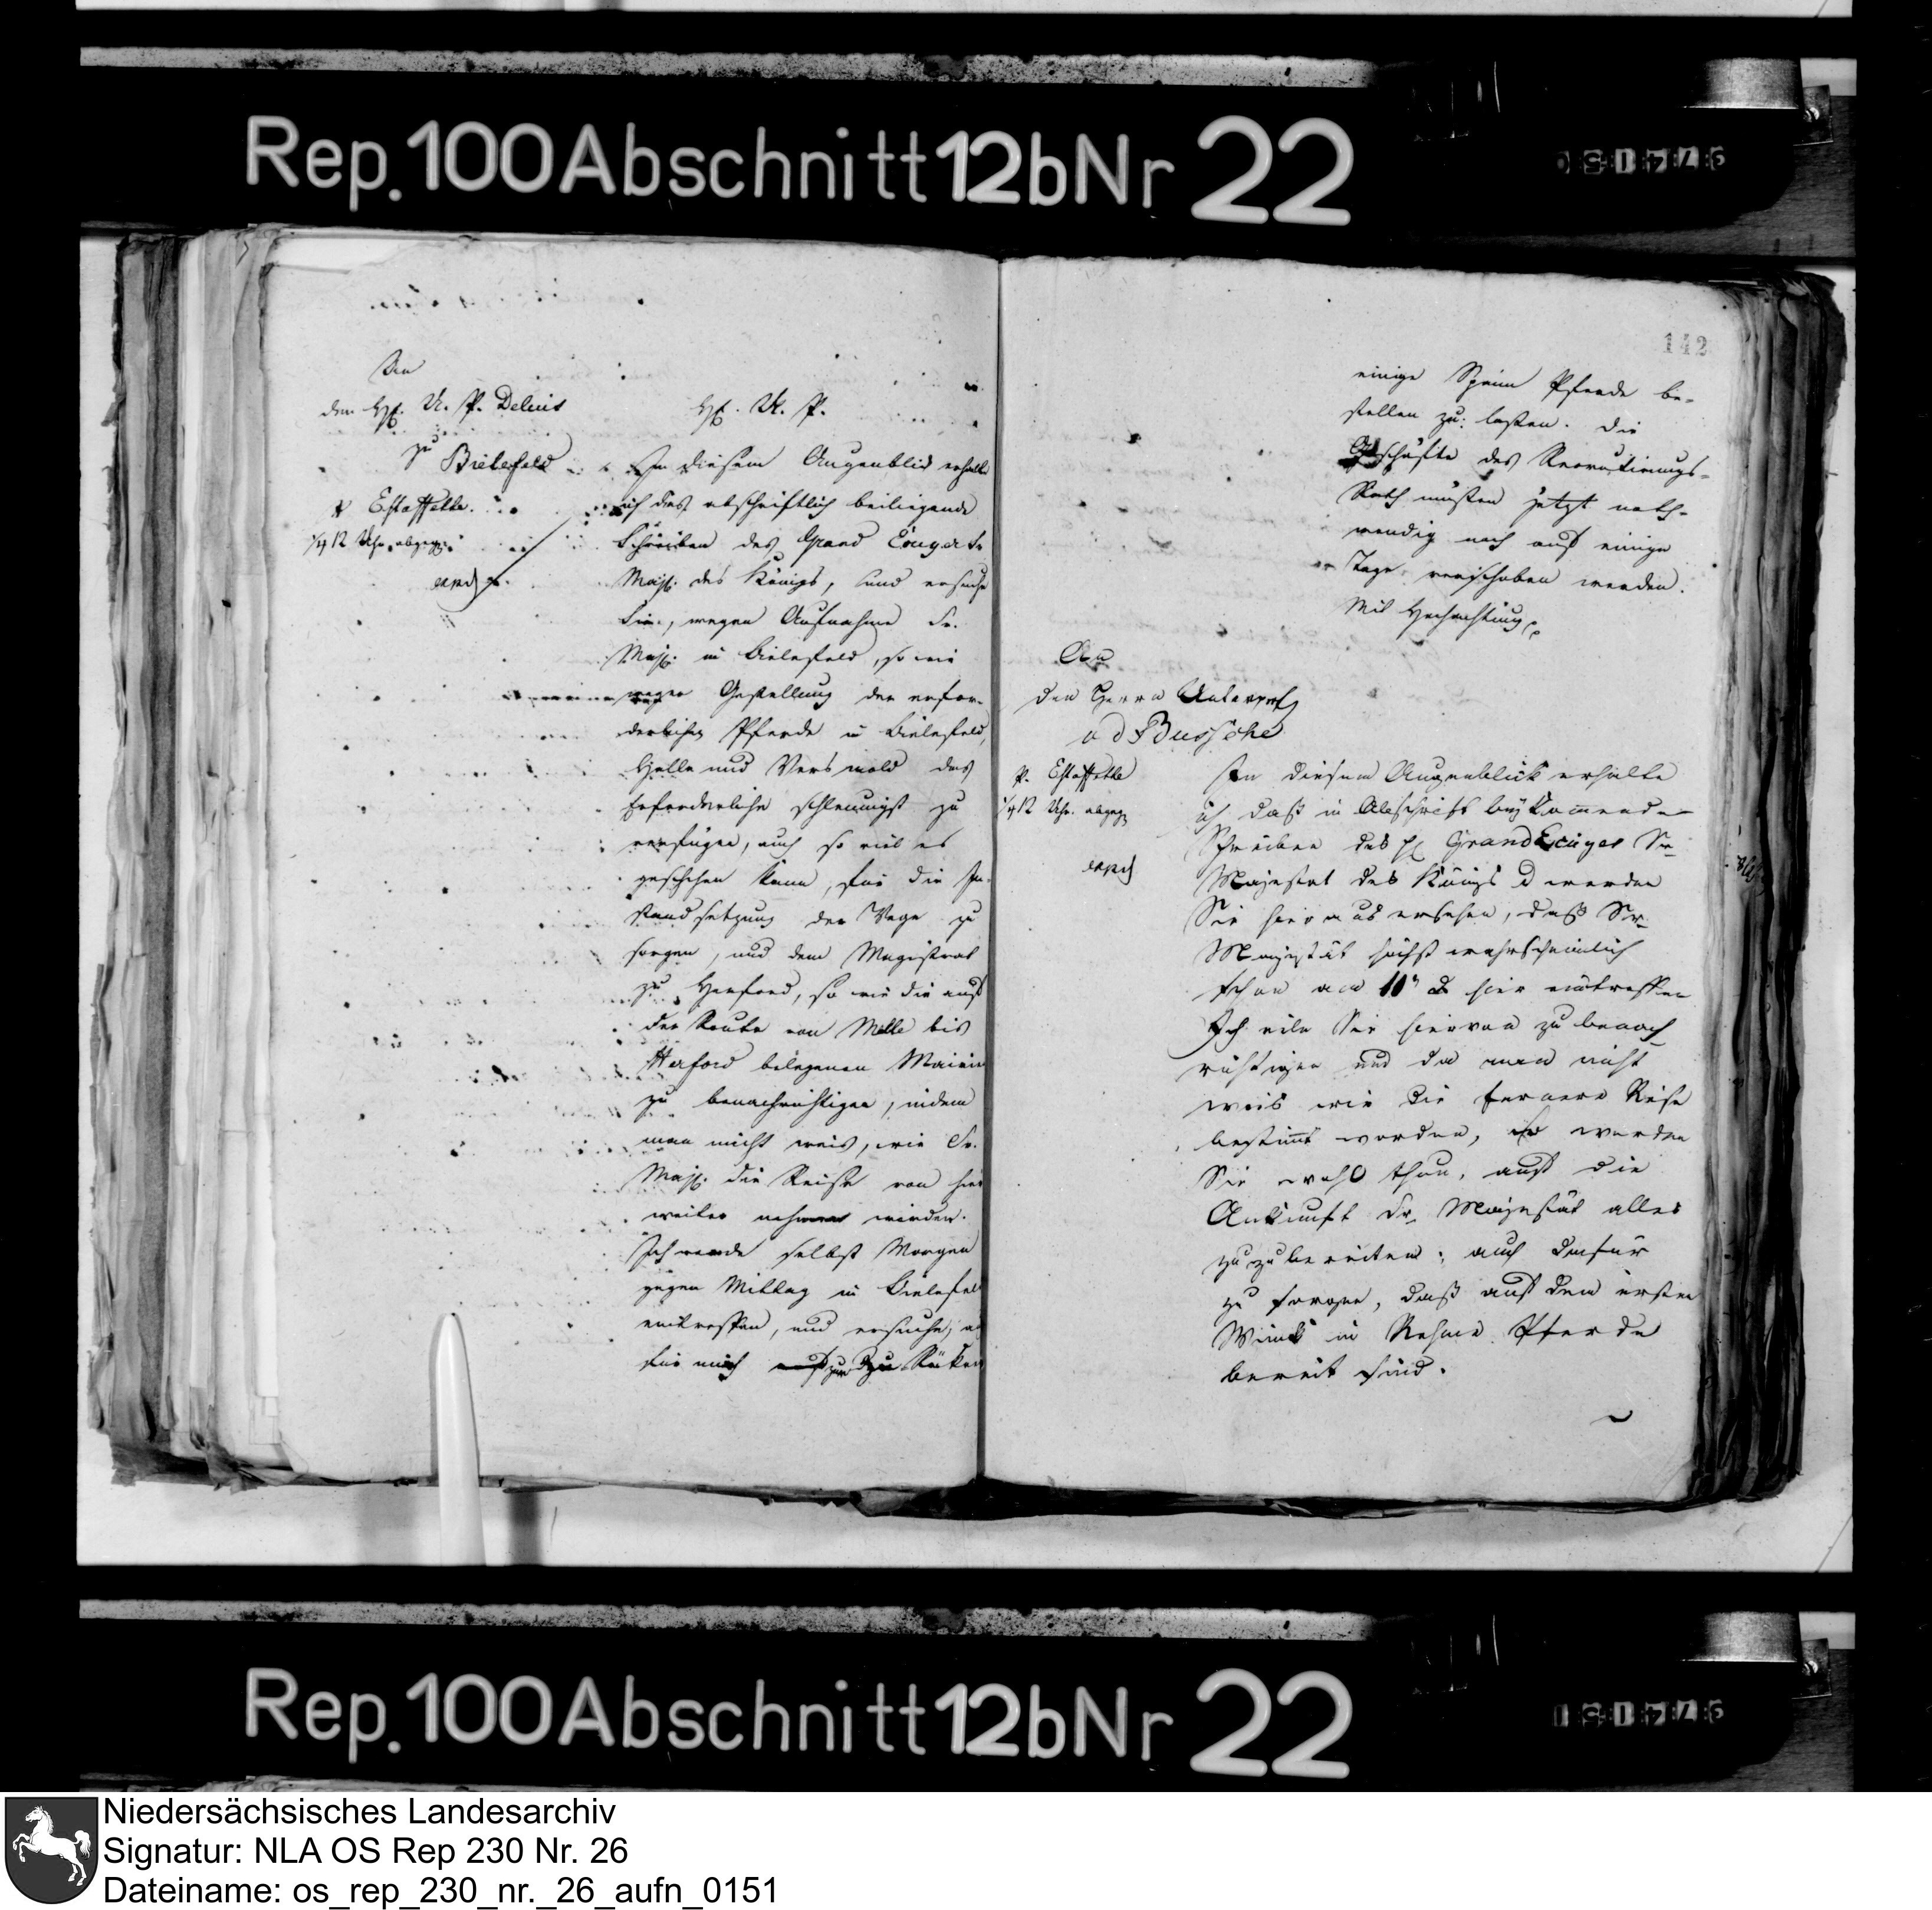 Rep. 100 Abschnitt 12b Nr 22
An
den H. U. P. Delius
zu Bielefeld
p Estaffette.
1/4 12 Uhr abgeg.
exped
H. U. P.
In diesem Augenblick erhalte
ich das abschriftlich beiliegende
Schreiben des Grand Ecuyer Sr.
Maj. des Königs, und ersuche
Sie, wegen Aufnahme Sr.
Maj. in Bielefeld, so wie
wegen Gestellung der erfor-
derlichen Pferde in Bielefeld,
Halle und Versmold das
Erforderliche schleunigst zu
verfügen, auch so viel es
geschehen kann, für die In-
standsetzung der Wege zu
sorgen, und dem Magistrat
zu Herford, so wie die auf
der Route von Melle bis
Herford belegenen Mairien
zu benachrichtigen, indem
man nicht weis, wie Sr.
Maj. die Reise von hier
weiter nehmen werden.
Ich werde selbst Morgen
gegen Mittag in Bielefeld
eintreffen, und ersuche,
für mich zur
142
einige Spann Pferde be-
stellen zu lassen. Die
Geschäfte des Recrutirungs-
Rath müssen jetzt noth-
wendig noch auf einige
Tage verschoben werden.
Mit Hochachtung
An
den Herrn Unterpräf
v d Bussche
p. Estaffette
1/4 12 Uhr. abgeg
exped
In diesem Augenblick erhalte
ich daß in Abschrift beykommende
Schreiben des H Grand Ecuyer Sr
Majestät des Königs d werden
Sie hieraus ersehen, daß Sr
Majestät höchst wahrscheinlich
schon am 10n d hier eintreffen
Ich eile Sie hiervon zu benach
richtigen und da man nicht
weis wie die fernere Reise
bestimt worden, so werden
Sie wohl thun, auf die
Ankunft Sr Majestät alles
zuzubereiten; auch dafür
zu sorgen, daß auf den ersten
Wink in Rehme Pferde
bereit sind.
Rep. 100 Abschnitt 12b Nr 22
Niedersächsisches Landesarchiv
Signatur: NLA OS Rep 230 Nr. 26
Dateiname: os_rep_230_nr._26_aufn_0151